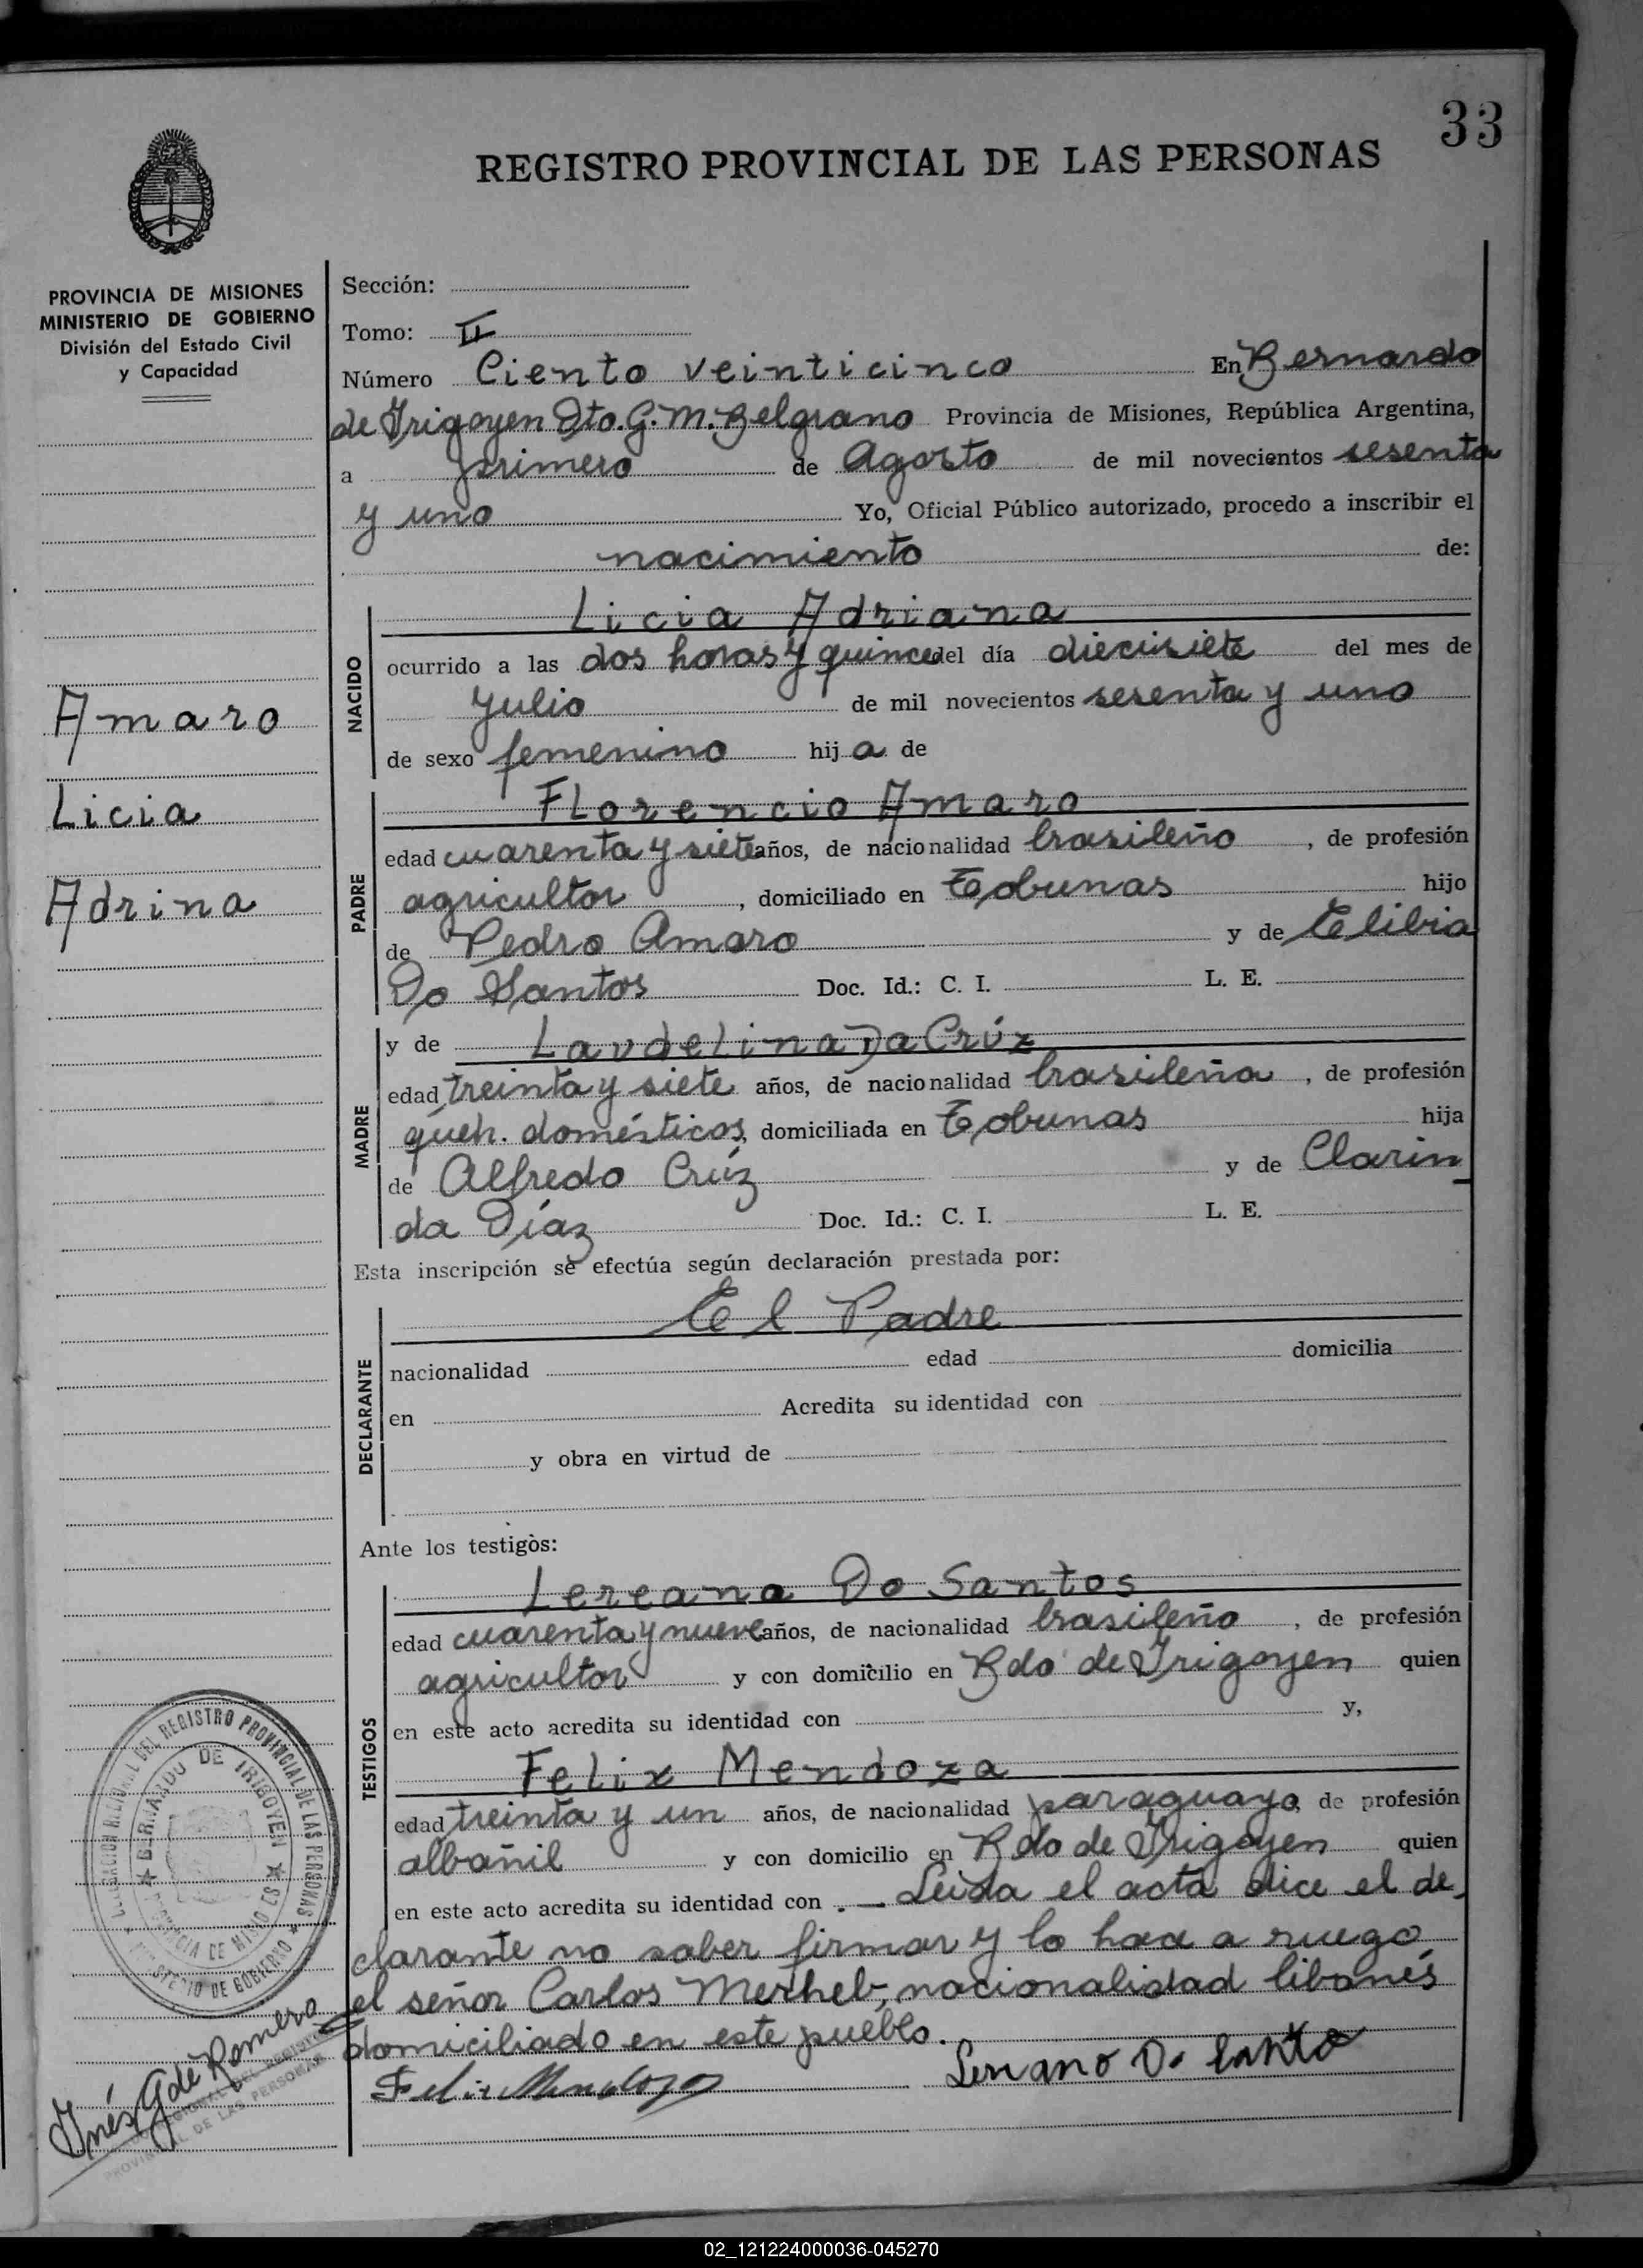 33
REGISTRO PROVINCIAL DE LAS PERSONAS
PROVINCIA DE MISIONES
MINISTERIO DE GOBIERNO
División del Estado Civil
y Capacidad
Amaro
Licia
Adrina
Sección:
Tomo: II
Número Ciento veinticinco En Bernardo
de Irigoyen Dto. G. M. Belgrano Provincia de Misiones, República Argentina,
a primero de Agosto de mil novecientos sesenta
y uno Yo, Oficial Público autorizado, procedo a inscribir el
nacimiento de:
NACIDO
Licia Adriana
ocurrido a las dos horas y quince del día diecisiete del mes de
Julio de mil novecientos sesenta y uno
de sexo femenino hija de
PADRE
Florencio Amaro
edad cuarenta y siete años, de nacionalidad brasileño, de profesión
agricultor, domiciliado en Tobunas hijo
de Pedro Amaro y de Elibia
Do Santos Doc. Id.: C. I. L. E.
MADRE
y de Laudelina Da Crúz
edad treinta y siete años, de nacionalidad brasileña, de profesión
queh. domésticos, domiciliada en Tobunas hija
de Alfredo Crúz y de Clarin
da Díaz Doc. Id.: C. I. L. E.
Esta inscripción se efectúa según declaración prestada por:
DECLARANTE
El Padre
nacionalidad edad domicilia
en Acredita su identidad con
y obra en virtud de
Ante los testigos:
TESTIGOS
Lereana Do Santos
edad cuarenta y nueve años, de nacionalidad brasileño, de profesión
agricultor y con domicilio en Bdo de Irigoyen quien
en este acto acredita su identidad con y,
Felix Mendoza
edad treinta y un años, de nacionalidad paraguaya, de profesión
albañil y con domicilio en Bdo de Irigoyen quien
en este acto acredita su identidad con . — Leída el acta dice el de
clarante no saber firmar y lo hace a ruego
el señor Carlos Merheb, nacionalidad libanés
domiciliado en este pueblo.
Felix Mendoza
DEL REGISTRO PROVINCIAL DE LAS PERSONAS
BERNARDO DE IRIGOYEN
MINISTERIO DE GOBIERNO
Inés G de Romero
02_121224000036-045270